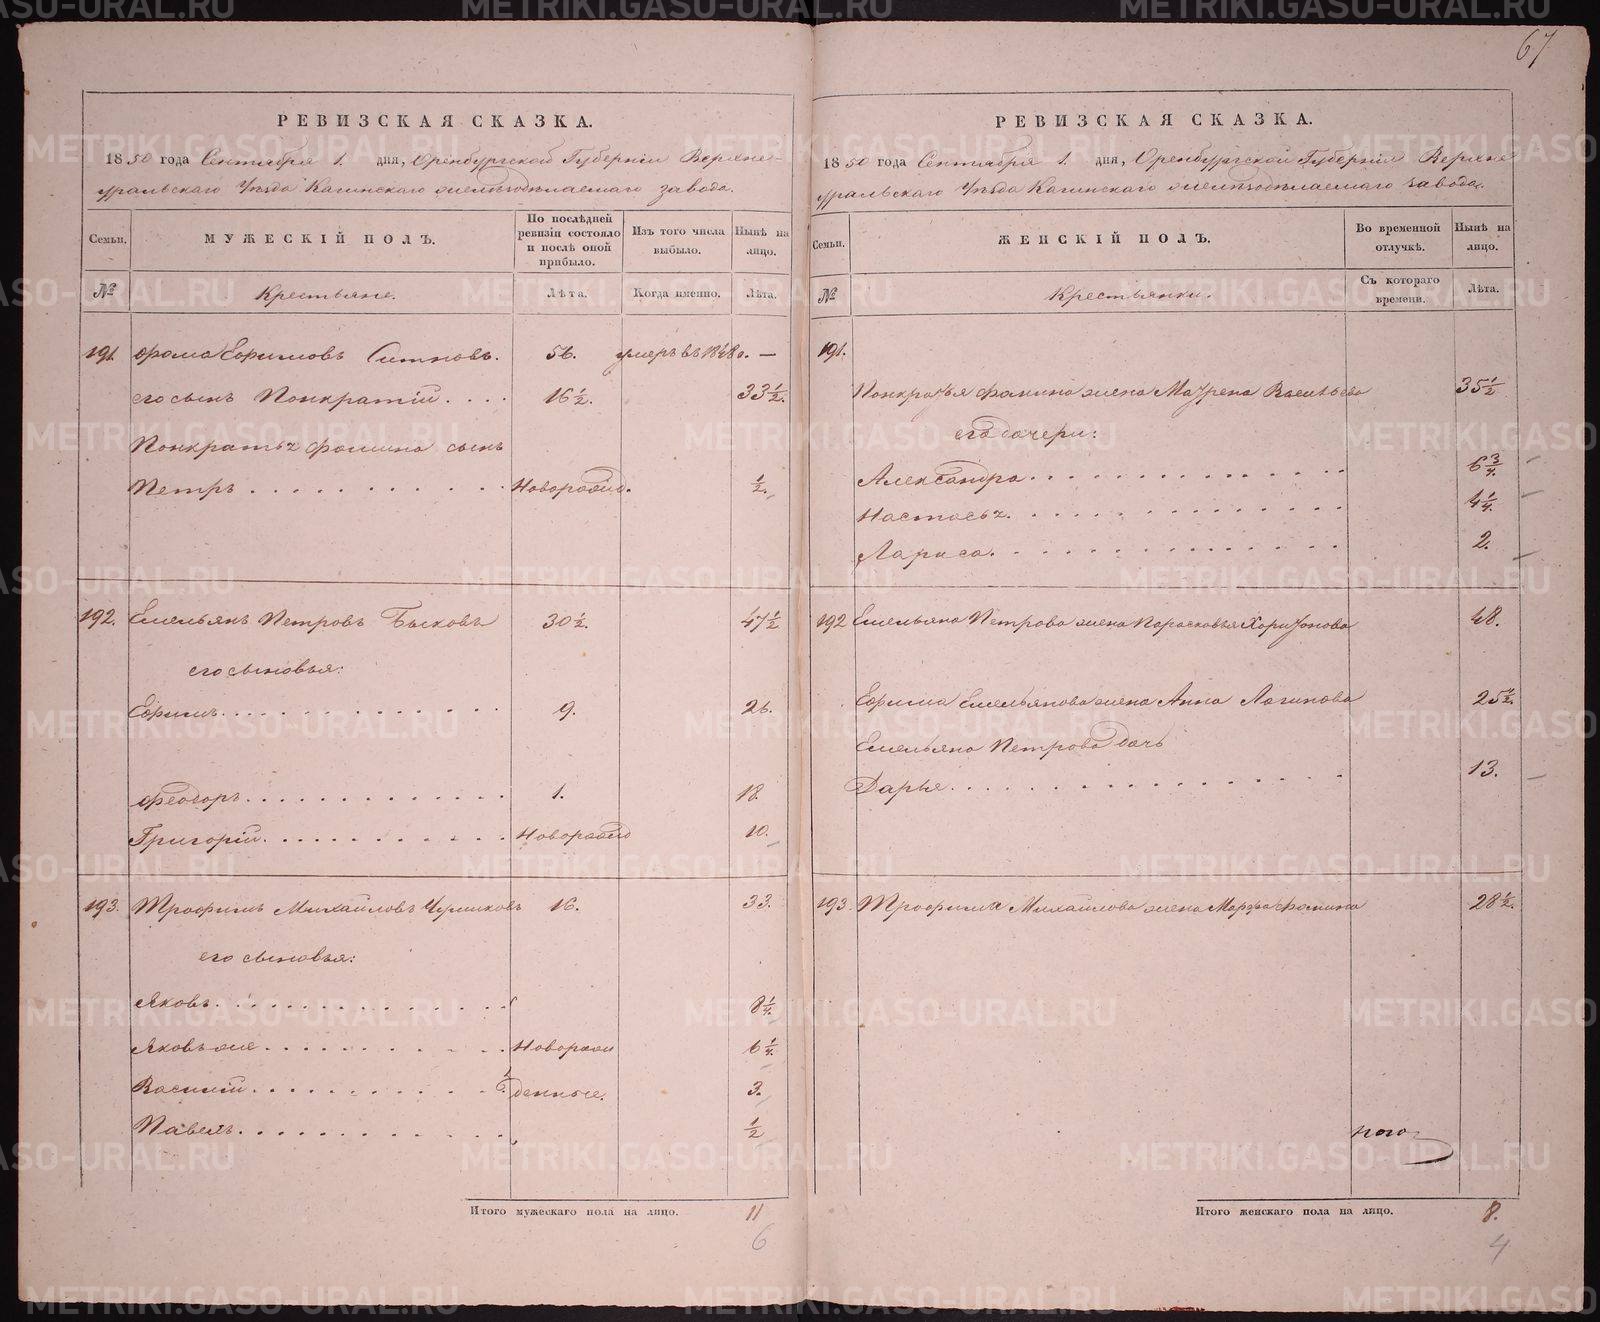 67
РЕВИЗСКАЯ СКАЗКА.
1850 года Сентября 1. дня, Оренбургской Губерніи Верхне-
уральскаго Уѣзда Кагинскаго желѣзодѣлаемаго завода.
Семьи.
МУЖЕСКІЙ ПОЛЪ.
По послѣдней ревизіи состояло и послѣ оной прибыло.
Изъ того числа выбыло.
Нынѣ на лицо.
№ Крестьяне. Лѣта. Когда именно. Лѣта.
191. Фома Ефимовъ Ситновъ. 56. умеръ въ 1848 г. —
его сынъ Понкратій 16½. 33½.
Понкратья Фомина сынъ
Петръ Новорожд. ½.
192. Емельянъ Петровъ Быковъ 30½. 47½
его сыновья:
Ефимъ 9. 26.
Феодоръ 1. 18.
Григорій Новорожд 10.
193. Трофимъ Михайловъ 16. 33.
его сыновья:
Яковъ 8¼.
Яковъ же Новорож 6¼.
Василій денные. 3.
Павелъ ½
Итого мужескаго пола на лицо. 11
6
РЕВИЗСКАЯ СКАЗКА.
1850 года Сентября 1. дня, Оренбургской Губерніи Верхне
уральскаго Уѣзда Кагинскаго желѣзодѣлаемаго завода.
Семьи.
ЖЕНСКІЙ ПОЛЪ.
Во временной отлучкѣ.
Нынѣ на лицо.
№ Крестьянки. Съ котораго времени. Лѣта.
191.
Понкратья Фомина жена Матрена Васильева 35½
его дочери:
Александра 6¾.
Настасья 4¼.
Лариса 2.
192 Емельяна Петрова жена Парасковья Харитонова 48.
Ефима Емельянова жена Анна Логинова 25½.
Емельяна Петрова дочь
Дарья 13.
193. Трофима Михайлова жена Марфа Фомина 28½.
Итого женскаго пола на лицо. 8.
4
METRIKI.GASO-URAL.RU